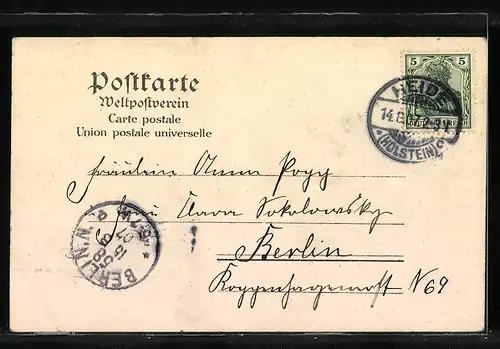 Postkarte
Weltpostverein
Carte postale
Union postale universelle
5 5
HEIDE
14.8.07
(HOLSTEIN)
Fräulein Anna Pogg
Frau Sokolowsky
Berlin
Koppenhagenerst N 69
BERLIN. N.
15.8.07